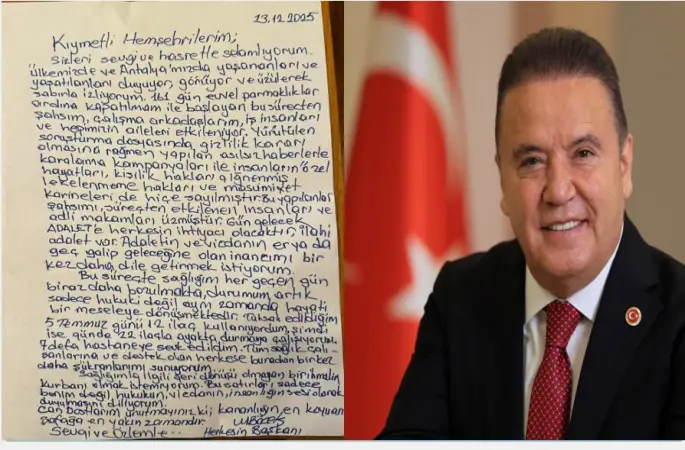 13.12.2025
Kıymetli Hemşehrilerim;
Sizleri sevgi ve hasretle selamlıyorum.
Ülkemizde ve Antalya'mızda yaşananları ve
yaşatılanları duyuyor, görüyor ve üzülerek
sabırla izliyorum. 161 gün evvel parmaklıklar
ardına kapatılmam ile başlayan bu süreçten
şahsım, çalışma arkadaşlarım, iş insanları
ve hepimizin aileleri etkileniyor. Yürütülen
soruşturma dosyasında, gizlilik kararı
olmasına rağmen yapılan asılsız haberlerle
karalama kampanyaları ile insanların özel
hayatları, kişilik hakları çiğnenmiş
lekelenmeme hakları ve masumiyet
karineleri de hiçe sayılmıştır. Bu yapılanlar
şahsımı, süreçten etkilenen insanları ve
adli makamları üzmüştür. Gün gelecek
ADALET'e herkesin ihtiyacı olacaktır, ilahi
adalet var. Adaletin ve vicdanın er ya da
geç galip geleceğine olan inancımı bir
kez daha dile getirmek istiyorum.
Bu süreçte sağlığım her geçen gün
biraz daha bozulmakta, durumum artık
sadece hukuki değil aynı zamanda hayati
bir meseleye dönüşmektedir. Tutsak edildiğim
5 Temmuz günü 12 ilaç kullanıyordum, şimdi
ise günde 22 ilaçla ayakta durmaya çalışıyorum.
7 defa hastaneye sevk edildim. Tüm sağlık çalı-
şanlarına ve destek olan herkese buradan bir kez
daha şükranlarımı sunuyorum.
Sağlığımla ilgili geri dönüşü olmayan bir ihmalin
kurbanı olmak istemiyorum. Bu satırları sadece
benim değil hukukun, vicdanın, insanlığın sesi olarak
duyulmasını diliyorum.
Can dostlarım unutmayınız ki; karanlığın en koyu anı
şafağa en yakın zamandır.
Sevgi ve Özlemle.. Herkesin Başkanı